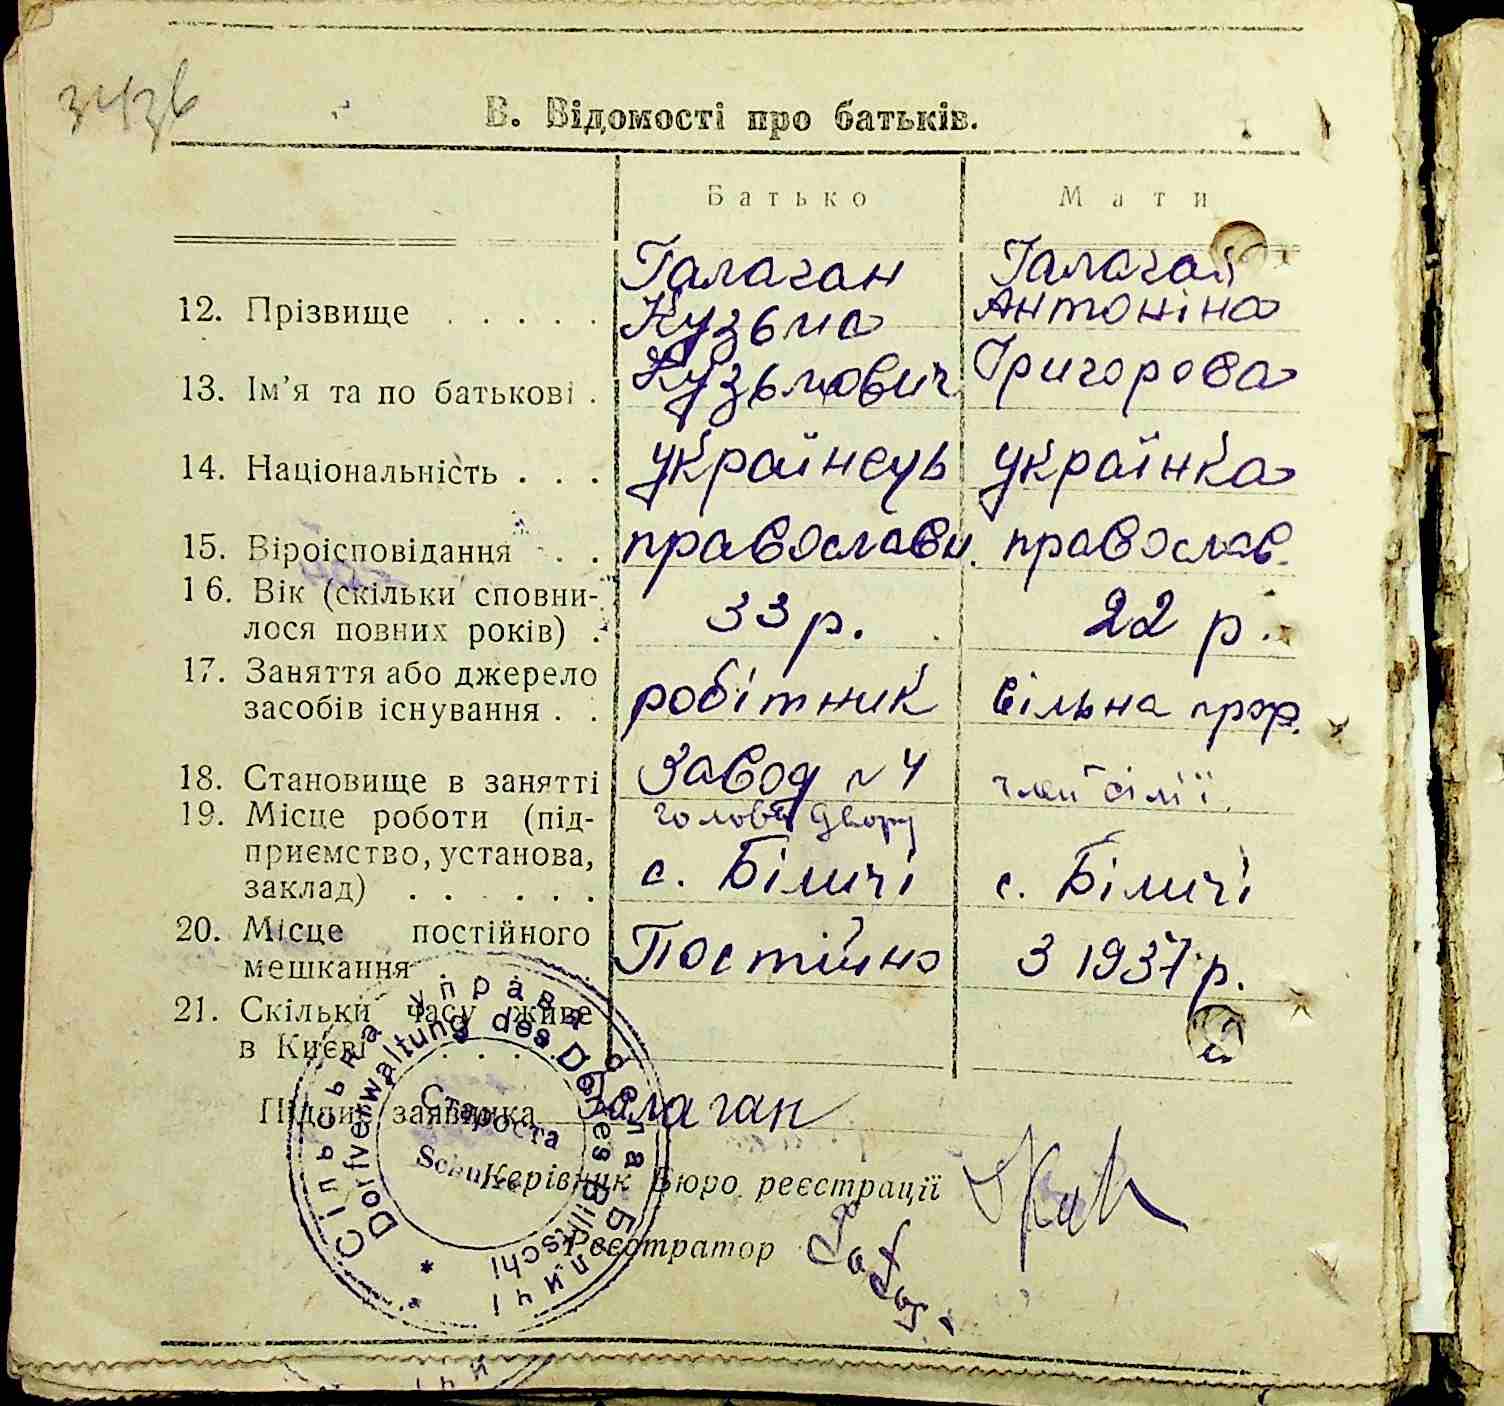 В. Відомості про батьків.
Батько Мати
Галаган Галаган
12. Прізвище . . . . . Кузьма Антоніна
13. Ім’я та по батькові . Кузьмович Григорова
14. Національність . . . українець українка
15. Віроісповідання . . православн. православ.
16. Вік (скільки сповни-
лося повних років) . 33 р. 22 р.
17. Заняття або джерело
засобів існування . . робітник вільна проф.
18. Становище в занятті завод №4 член сім'ї.
19. Місце роботи (під- голова двору
приємство, установа,
заклад) . . . . . . с. Біличі с. Біличі
20. Місце постійного
мешкання Постійно З 1937 р.
21. Скільки часу живе
в Києві . . . .
Підпис заявника Галаган
Керівник Бюро реєстрації
Реєстратор
Сільська управа села Біличі
Dorfverwaltung des Dorfes Bilitschi
Староста